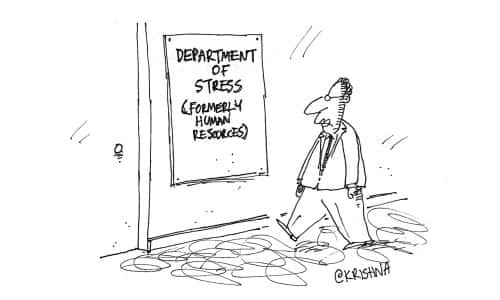 DEPARTMENT
OF
STRESS
(FORMERLY
HUMAN
RESOURCES)
©KRISHNA